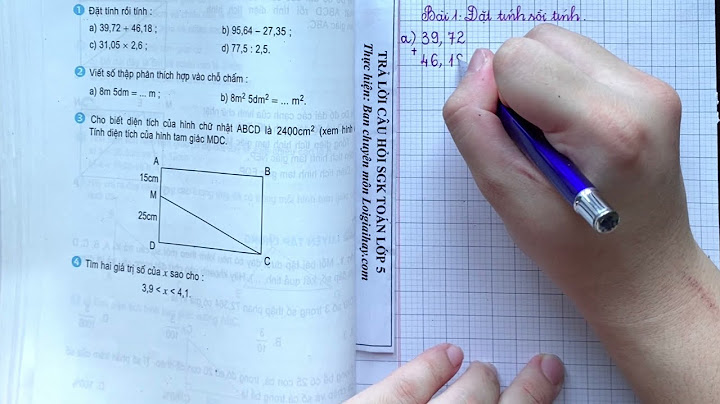 1 Đặt tính rồi tính :
a) 39,72 + 46,18 ;
b) 95,64 − 27,35 ;
c) 31,05 × 2,6 ;
d) 77,5 : 2,5.
2 Viết số thập phân thích hợp vào chỗ chấm :
a) 8m 5dm = ... m ;
b) 8m² 5dm² = ... m².
3 Cho biết diện tích của hình chữ nhật ABCD là 2400cm² (xem hình
Tính diện tích của hình tam giác MDC.
A
B
15cm
M
25cm
D
C
4 Tìm hai giá trị số của x sao cho :
3,9 < x < 4,1.
TRẢ LỜI CÂU HỎI SGK TOÁN LỚP 5
Thực hiện: Ban chuyên môn Loigiaihay.com
Bài 1. Đặt tính rồi tính.
a) 39,72
+
46,18